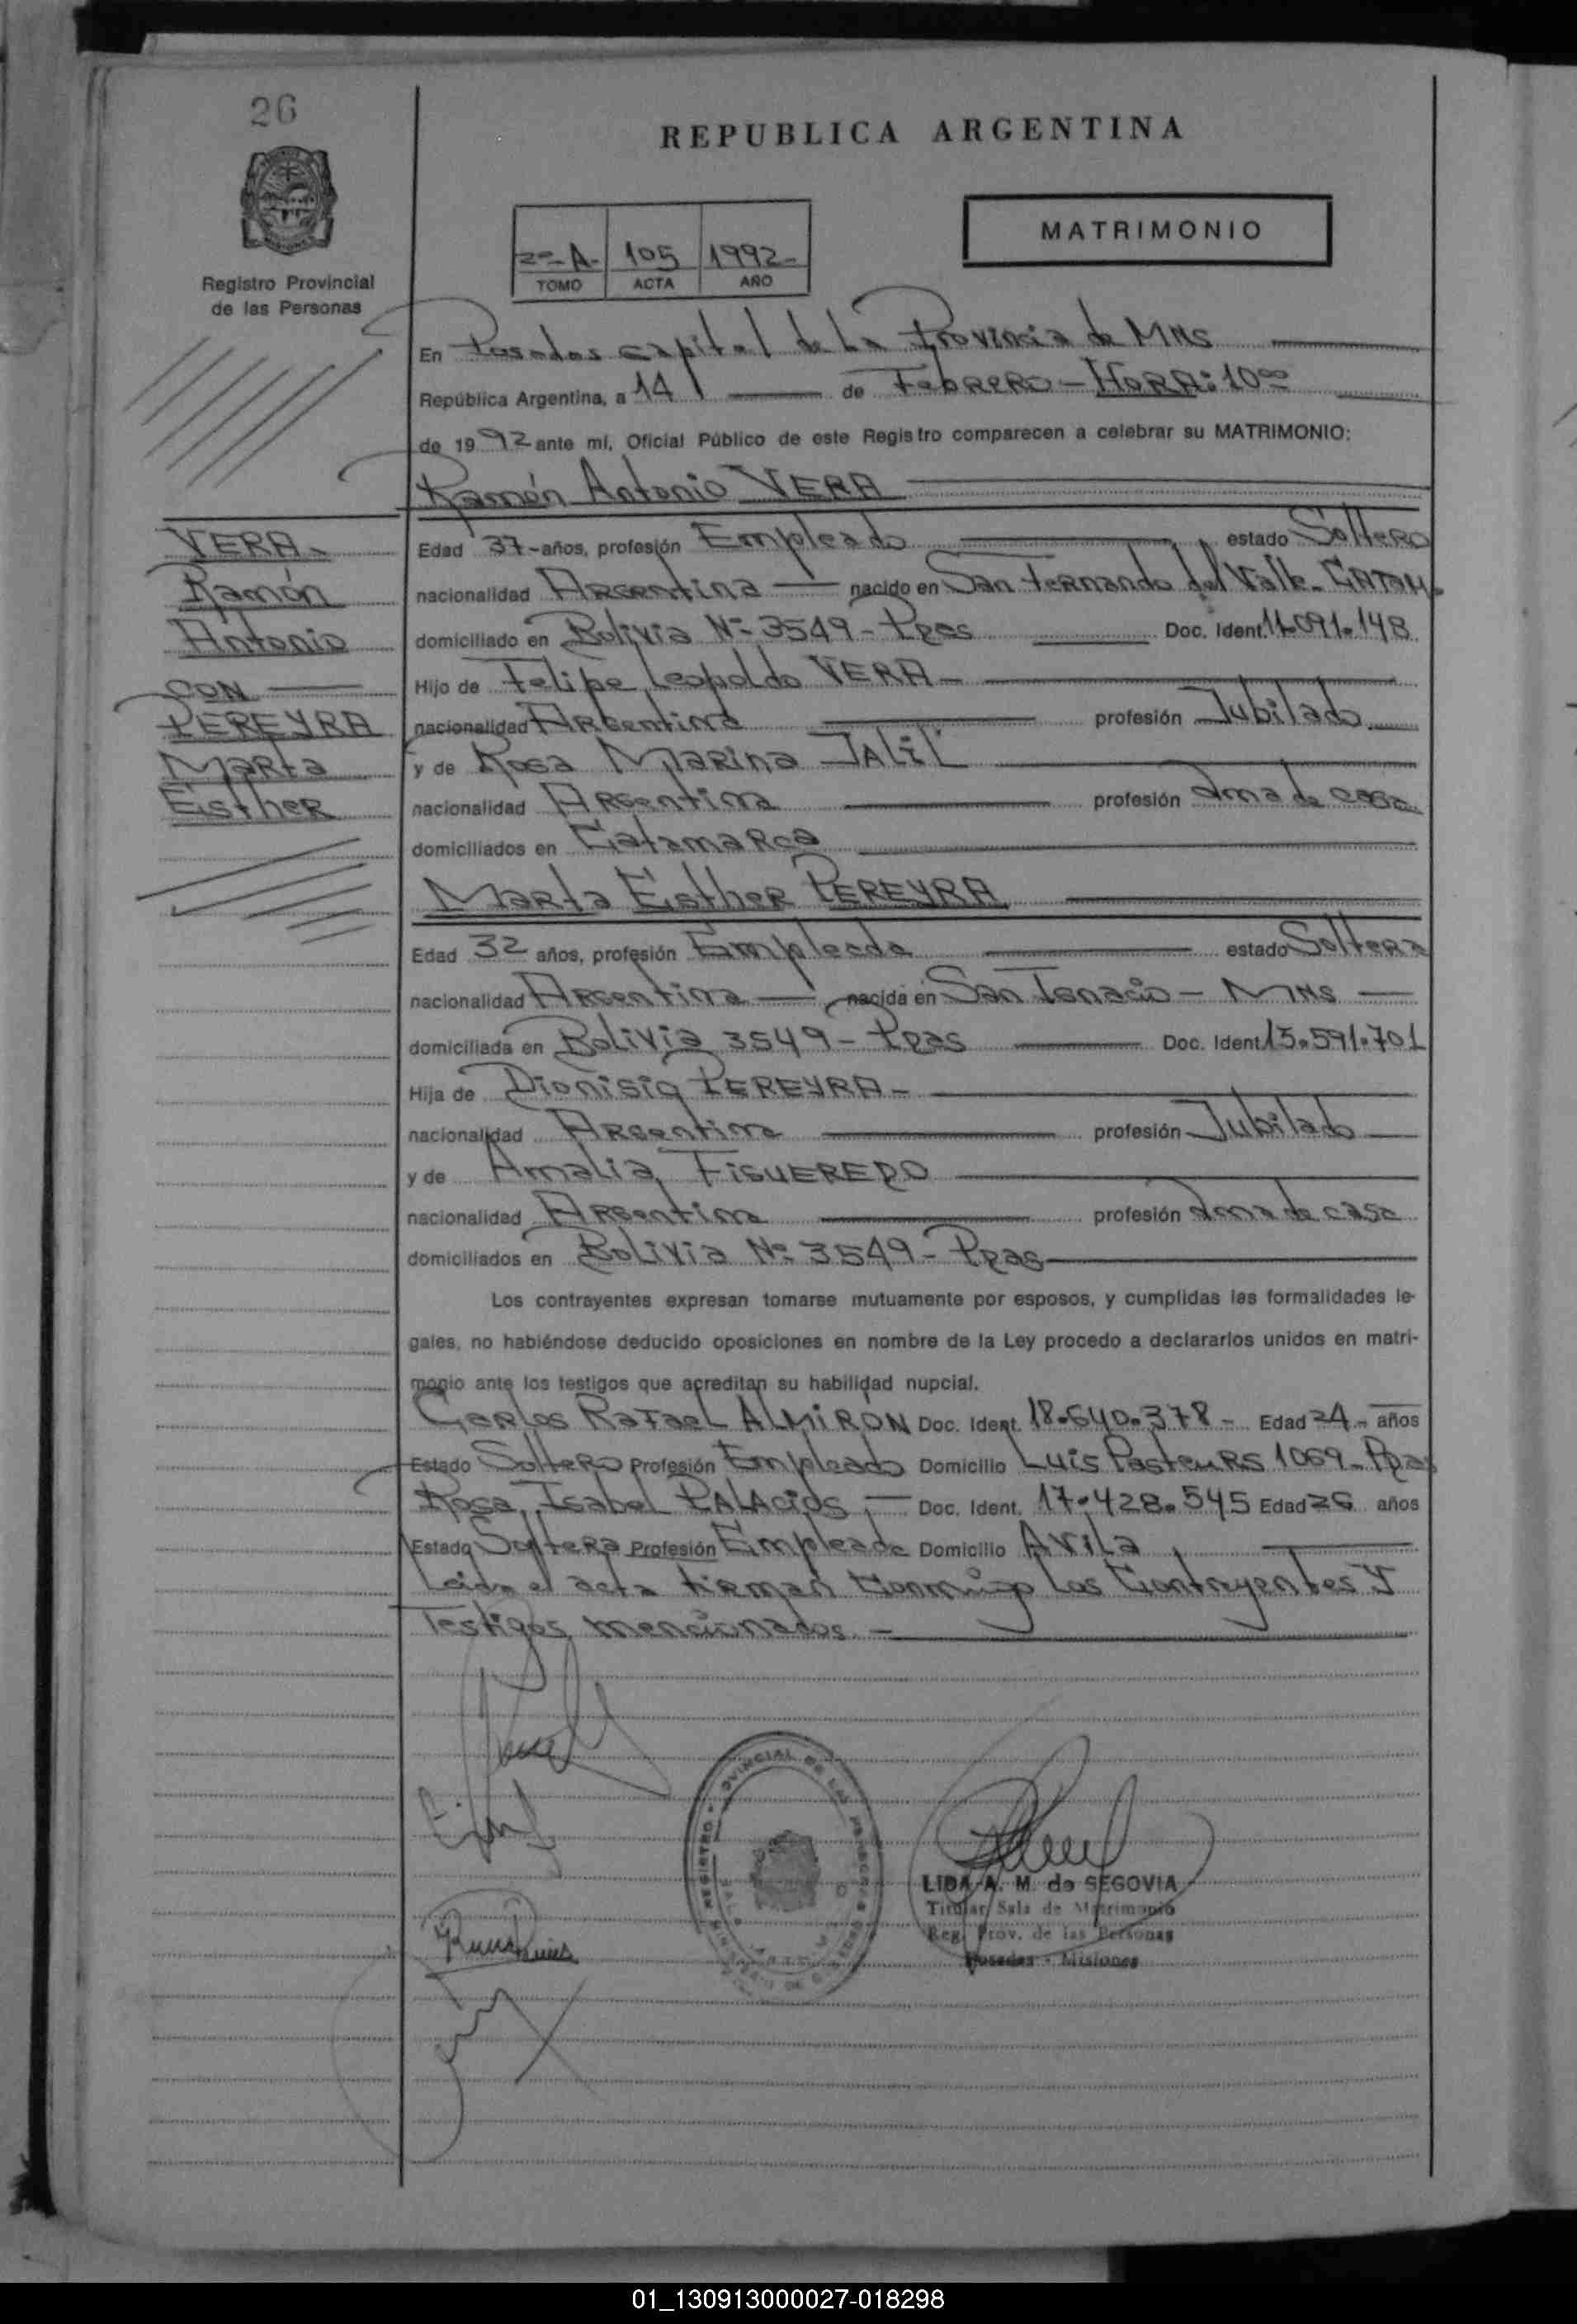 26
REPUBLICA ARGENTINA
MATRIMONIO
2º-A- 105 1992-
TOMO ACTA AÑO
Registro Provincial
de las Personas
En Posadas capital de La Provincia de MNS
República Argentina, a 14 de Febrero - HORA: 10 00
de 19 92 ante mí, Oficial Público de este Registro comparecen a celebrar su MATRIMONIO:
Ramón Antonio VERA
VERA-
Ramón
Antonio
CON
PEREYRA
Marta
Esther
Edad 37-años, profesión Empleado estado Soltero
nacionalidad Argentina nacido en San Fernando del Valle-CATAM.
domiciliado en Bolivia Nº 3549-Pdas Doc. Ident. 11.091.148
Hijo de Felipe Leopoldo VERA-
nacionalidad Argentina profesión Jubilado
y de Rosa Marina JALIL
nacionalidad Argentina profesión Ama de casa
domiciliados en Catamarca
Marta Esther PEREYRA
Edad 32 años, profesión Empleada estado Soltera
nacionalidad Argentina nacida en San Ignacio - MNS
domiciliada en Bolivia 3549-Pdas Doc. Ident. 13.591.701
Hija de Dionisio PEREYRA-
nacionalidad Argentina profesión Jubilado
y de Amalia FIGUEREDO
nacionalidad Argentina profesión Ama de casa
domiciliados en Bolivia Nº 3549-Pdas
Los contrayentes expresan tomarse mutuamente por esposos, y cumplidas las formalidades le-
gales, no habiéndose deducido oposiciones en nombre de la Ley procedo a declararlos unidos en matri-
monio ante los testigos que acreditan su habilidad nupcial.
Carlos Rafael ALMIRÓN Doc. Ident. 18.640.378- Edad 24- años
Estado Soltero Profesión Empleado Domicilio Luis Pasteurs 1069-Pdas
Rosa Isabel PALACIOS Doc. Ident. 17.428.545 Edad 26 años
Estado Soltera Profesión Empleada Domicilio Avila
Leida el acta firman conmigo Los Contrayentes y
Testigos mencionados.-
REGISTRO PROVINCIAL DE LAS PERSONAS
LIDA A. M. de SEGOVIA
Titular Sala de Matrimonio
Reg. Prov. de las Personas
Posadas - Misiones
01_130913000027-018298